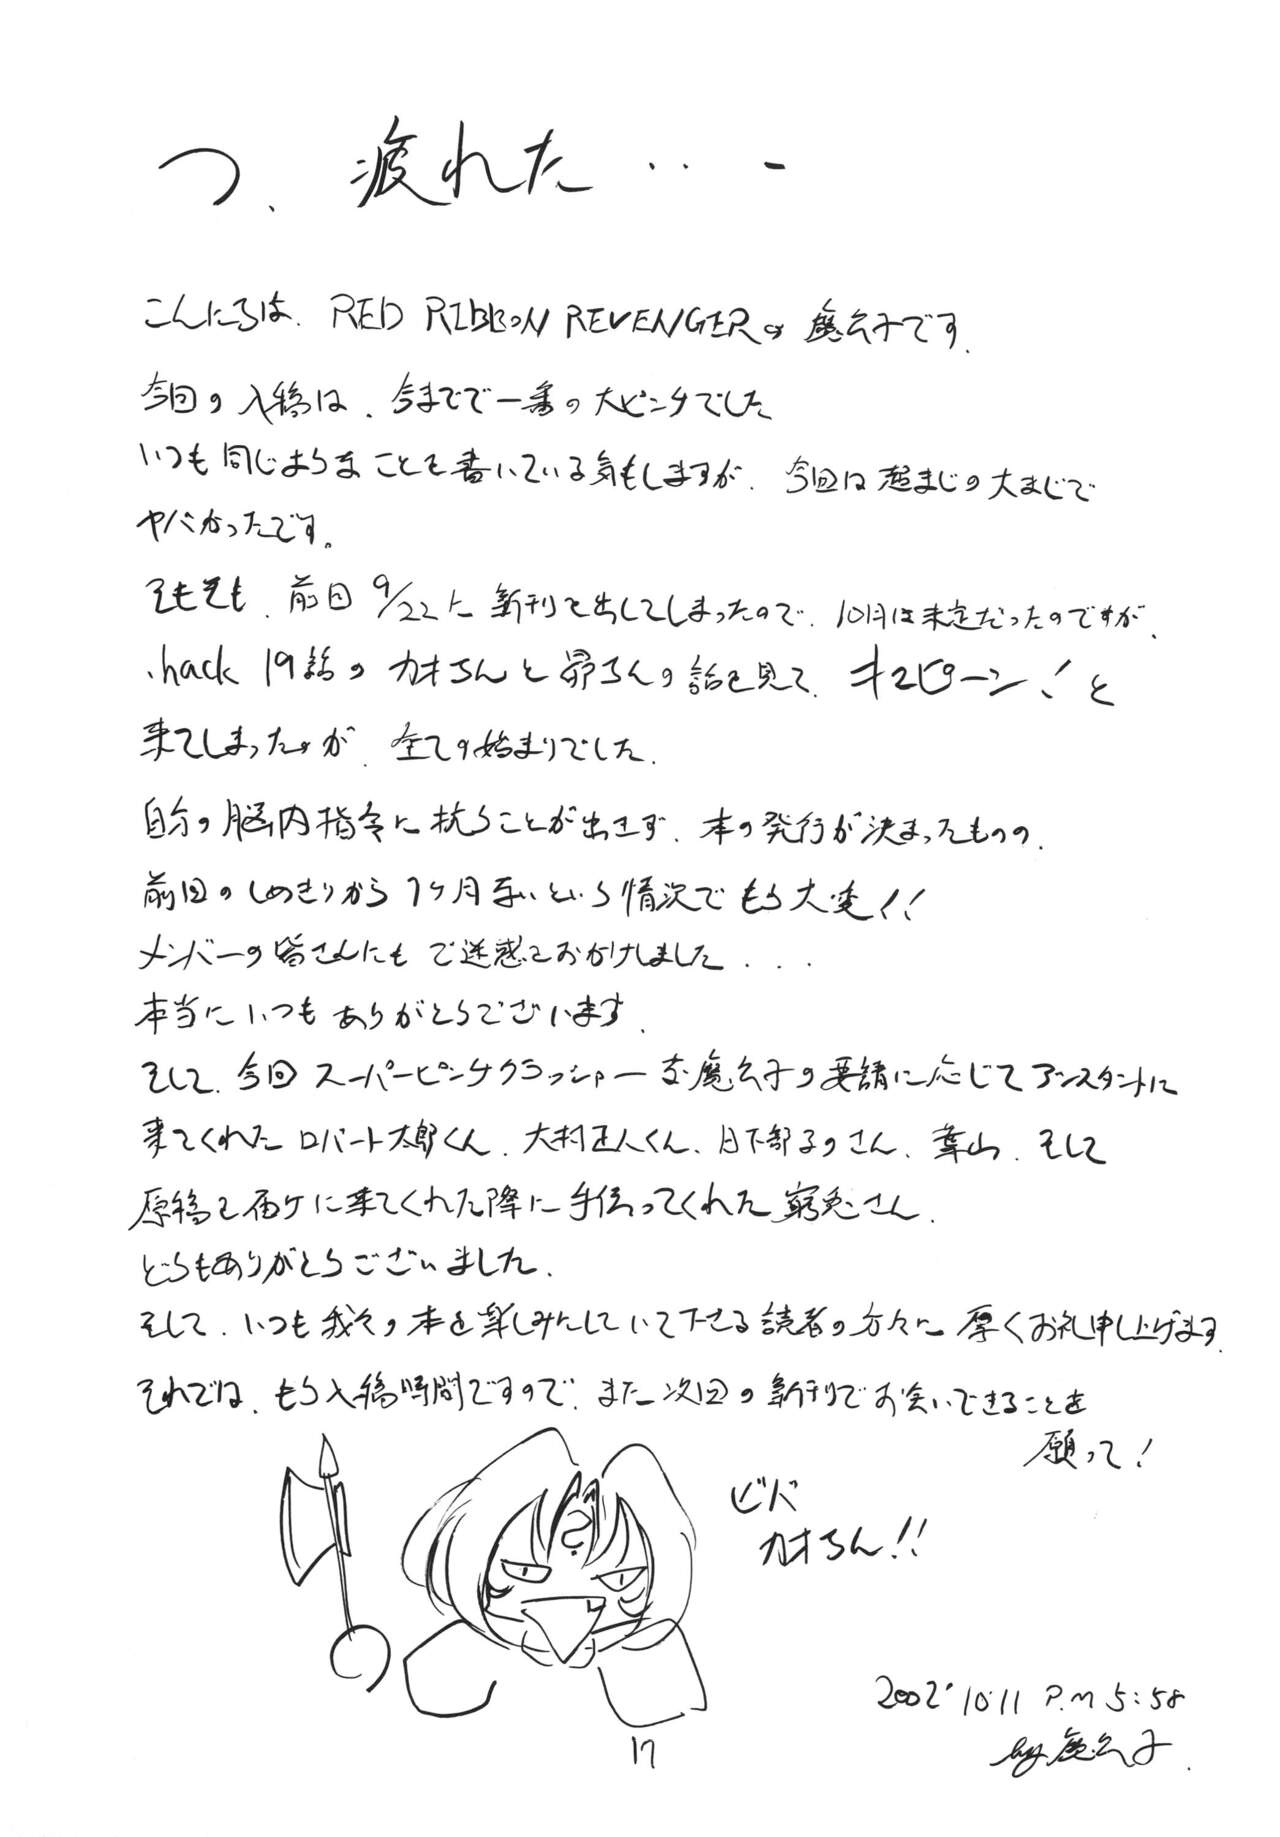 つ、疲れた・・・
こんにちは、RED RIBBON REVENGERの魔公子です。
今回の入稿は、今までで一番の大ピンチでした
いつも同じようなことを書いている気もしますが、今回は超まじの大まじで
ヤバかったです。
そもそも、前回9/22に新刊を出してしまったので、10月は未定だったのですが、
.hack 19話のカオちんと昴ちんの話を見て、キュピーン!と
来てしまったのが、全ての始まりでした。
自分の脳内指令に抗うことが出きず、本の発行が決まったものの、
前回のしめきりから1ヶ月無いという情況でもう大変!!
メンバーの皆さんにもご迷惑をおかけしました...
本当にいつもありがとうございます。
そして、今回スーパーピンチクラッシャーな魔公子の要請に応じてアシスタントに
来てくれたロバート太郎くん、大村正人くん、日下部子のさん、葉山、そして
原稿を届ケに来てくれた際に手伝ってくれた窮兎さん、
どうもありがとうございました。
そして、いつも我々の本を楽しみにしていて下さる読者の方々に厚くお礼申し上げます。
それでは、もう入稿時間ですので、また次回の新刊でお会いできることを
願って!
ビバ
カオちん!!
2002' 10.11 P.M 5:58
by.魔公子.
17